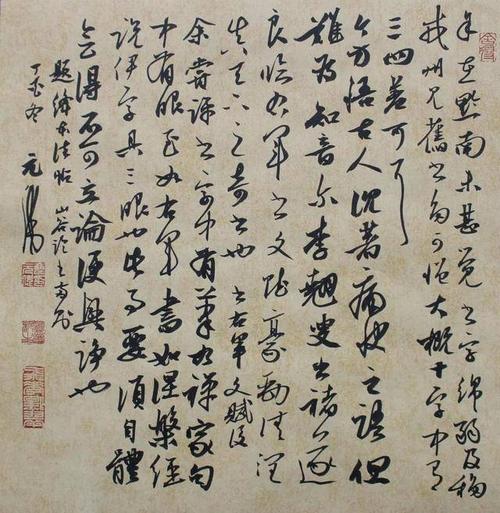 在黔南未甚覺書字綿弱及移
戎州見舊書多可憎大概十字中有
三四差可耳
今方悟古人沉著痛快之語但
難為知音爾李翹叟出褚遂
良臨右軍書文賦豪勁清潤
真天下之奇書也 書右軍文賦後
余嘗評書字中有筆如禪家句
中有眼至如右軍書如涅槃經
說伊字具三眼也此事要須自體
會得不可立論便興諍也
題絳本法帖 山谷論書兩則
丁亥冬 元